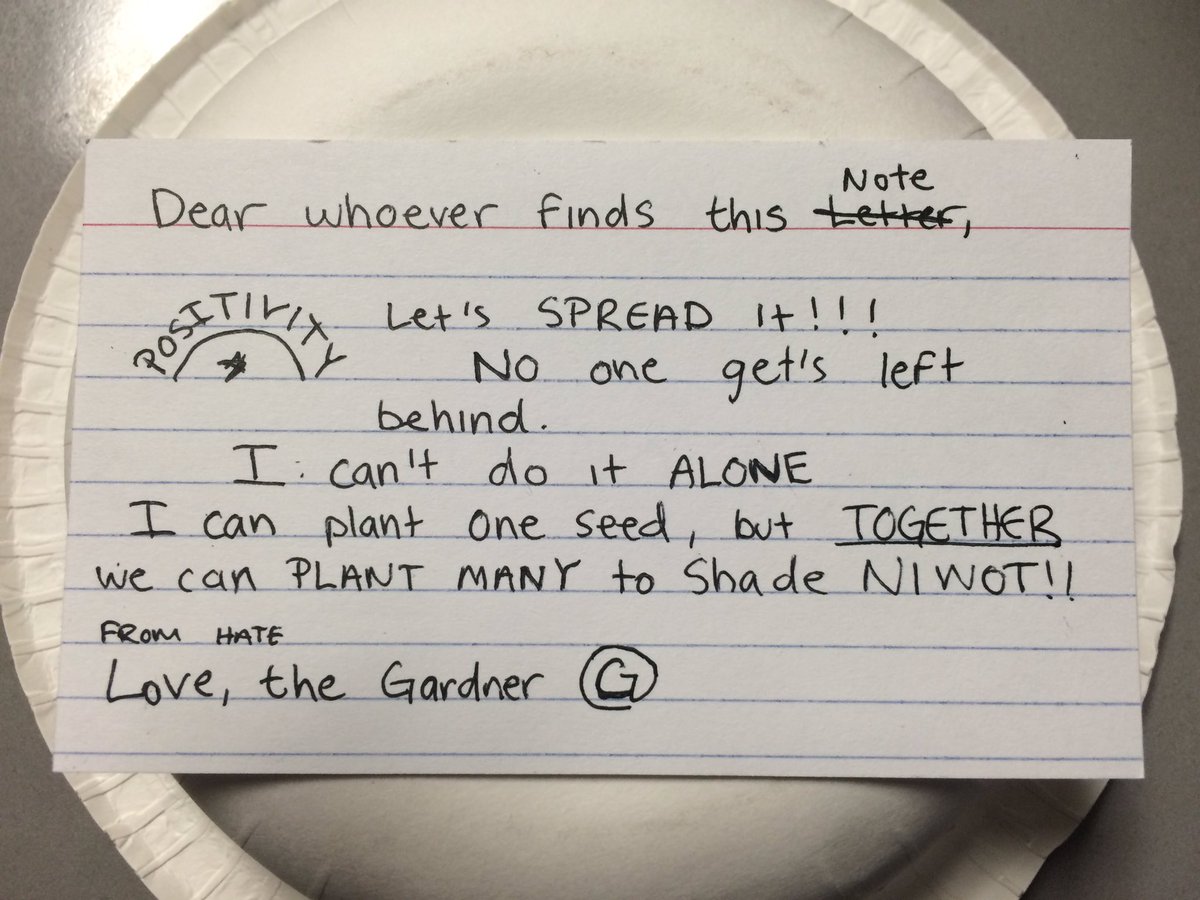 Dear whoever finds this Note Letter,
POSITIVITY Let's SPREAD It!!!
No one get's left
behind.
I can't do it ALONE
I can plant one seed, but TOGETHER
we can PLANT MANY to Shade NIWOT!!
FROM HATE
Love, the Gardner G